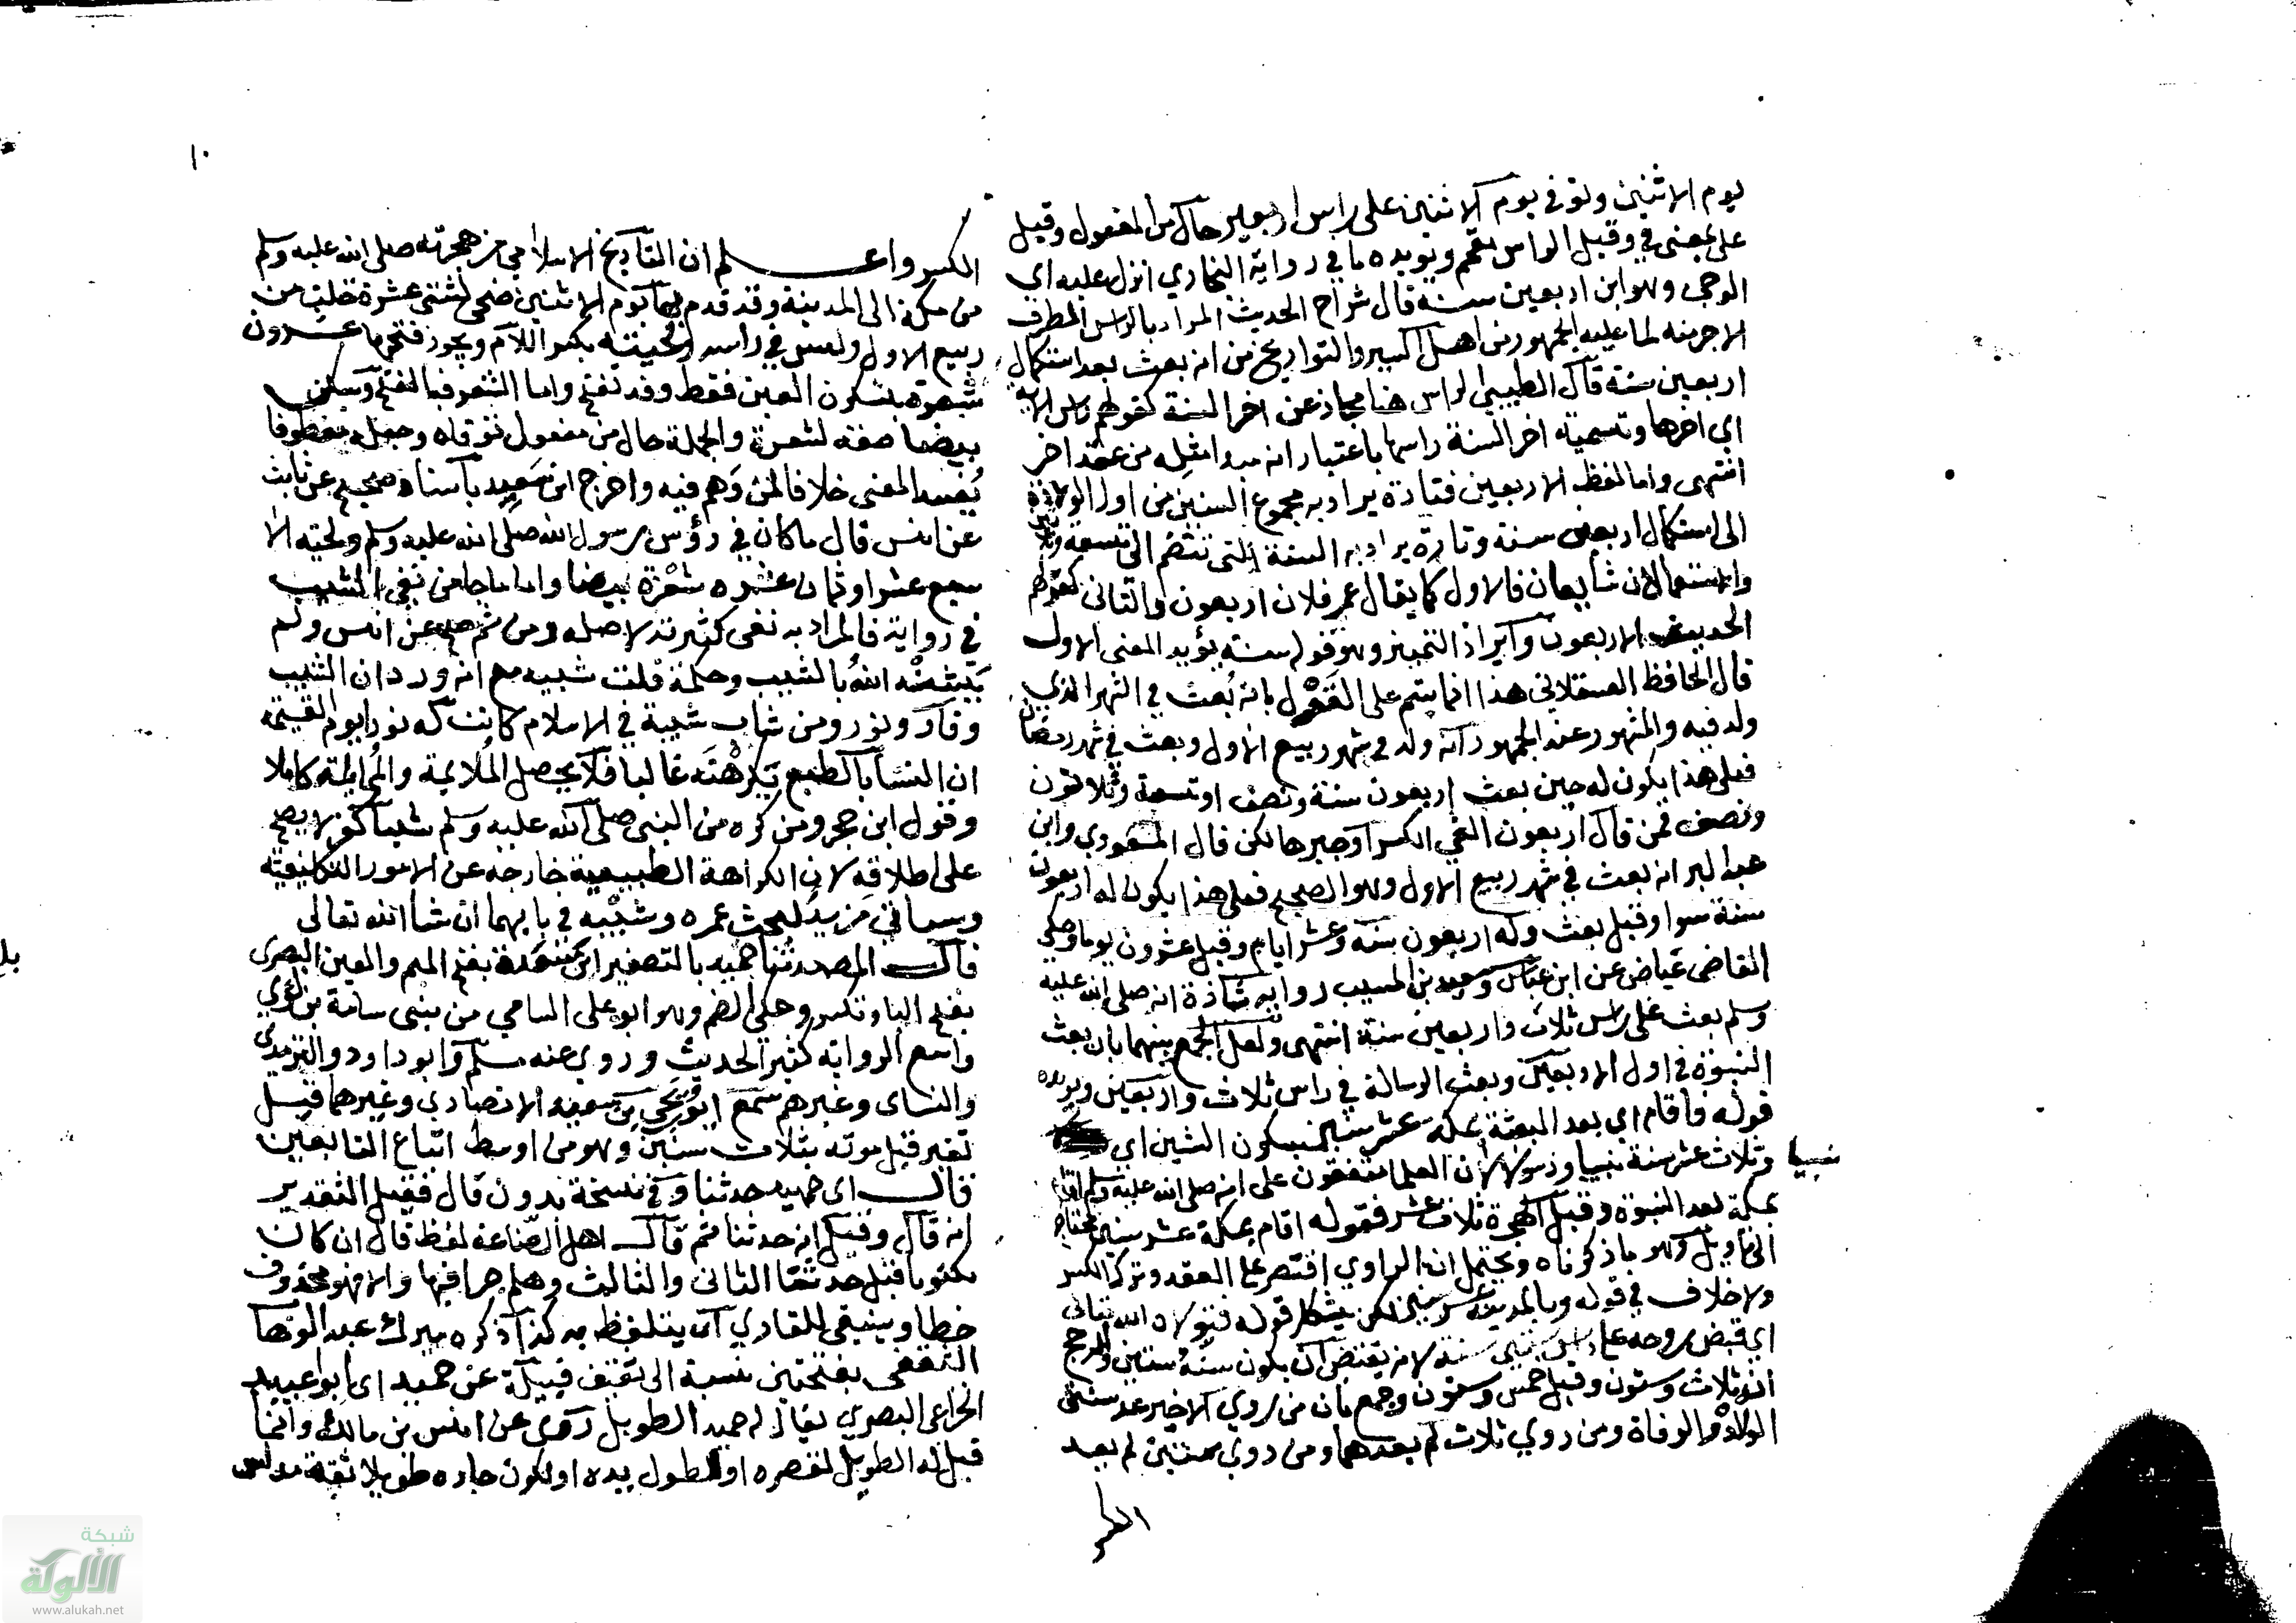 يوم الاثنين وتوفي يوم الاثنين على راس اربعين حال من المفعول وقيل
على بمعنى في وقيل الراس مقحم ويويده ما في رواية البخاري انزل عليه اي
الوحي وهو ابن اربعين سنة قال شراح الحديث المراد بالراس الطرف
الاخر منه لما عليه الجمهور من اهل السير والتواريخ من انه بعث بعد استكمال
اربعين سنة قال الطيبي الراس هنا مجاز عن اخر السنة كقولهم راس الاية
اي اخرها وتسمية اخر السنة راسها باعتبار انه مبدا مثله من عقد اخر
انتهى واما لفظ الاربعين فتارة يراد به مجموع السنين من اول الولادة
الى استكمال اربعين سنة وتارة يراد به السنة التي تنضم الى تسعة وثلاثين
والاستعمالان شايعان فالاول كما يقال عمر فلان اربعون والثاني كقولهم
الحديث الاربعون وايراد التمييز وهو قوله سنة يؤيد المعنى الاول
قال الحافظ العسقلاني هذا انما يتم على القول بانه بعث في الشهر الذي
ولد فيه والمشهور عند الجمهور انه ولد في شهر ربيع الاول وبعث في شهر رمضان
فعلى هذا يكون له حين بعث اربعون سنة ونصف او تسعة وثلاثون
ونصف فمن قال اربعون الغى الكسر او جبرها لكن قال المسعودي وابن
عبد البر انه بعث في شهر ربيع الاول وهو الصحيح فعلى هذا يكون له اربعون
سنة سوا وقيل بعث وله اربعون سنة وعشر ايام وقيل عشرون يوما وحكى
القاضي عياض عن ابن عباس وسعيد بن المسيب رواية شاذة انه صلى الله عليه
وسلم بعث على راس ثلاث واربعين سنة انتهى ولعل الجمع بينهما بان بعث
النبوة في اول الاربعين وبعث الرسالة في راس ثلاث واربعين ويويده
قوله فاقام اي بعد البعثة بمكة عشر سنين بسكون الشين اي
نبيا وثلاث عشر سنة نبيا ورسولا لان العلما متفقون على انه صلى الله عليه وسلم اقام
بمكة بعد النبوة وقبل الهجرة ثلاث عشر فقوله اقام بمكة عشر سنين محتاج
الى تاويل وهو ما ذكرناه ويحتمل ان الراوي اقتصر على العقد وترك الكسر
ولا خلاف في قوله وبالمدينة عشر سنين لكن يشكل قوله فتوفاه الله تعالى
اي قبض روحه على راس ستين سنة لانه يقتضي ان يكون سنه ستين والمرجح
انه ثلاث وستون وقيل خمس وستون وجمع بان من روى الاخير عد سنتي
الولادة والوفاة ومن روى ثلاث لم يعدهما ومن روى ستين لم يعد
الكسر
١٠
الكسر واعلم ان التاريخ الاسلامي من هجرته صلى الله عليه وسلم
من مكة الى المدينة وقد قدم بها يوم الاثنين ضحى لثنتي عشرة خلت من
ربيع الاول وليس في راسه ولحيته بكسر اللام ويجوز فتحها عشرون
شعرة بسكون العين فقط وقد تفتح واما الشعر فبالفتح وتسكن
بيضا صفة لشعرة والجملة حال من مفعول توفاه وجعله معطوفا
يفسد المعنى خلافا لمن وهم فيه واخرج ابن سعيد باسناد صحيح عن ثابت
عن انس قال ما كان في رؤس رسول الله صلى الله عليه وسلم ولحيته الا
سبع عشر او ثمان عشره شعرة بيضا واما ما جا من نفي الشيب
في رواية فالمراد به نفي كثرته لا اصله ومن ثم صح عن انس ولم
يشنه الله بالشيب وحكمة قلت شيبه مع انه ورد ان الشيب
وقار ونور ومن شاب شيبة في الاسلام كانت له نورا يوم القيمة
ان النسا بالطبع يكرهنه غالبا فلا يحصل الملايمة والمخالطة كاملا
وقول ابن حجر ومن كره من النبي صلى الله عليه وسلم شيئا كفر لا يصح
على اطلاقه لان الكراهة الطبيعية خارجه عن الامور التكليفية
وسياتي مزيد لبحث عمره وشيبه في بابهما ان شا الله تعالى
قال المص حدثنا حميد بالتصغير ابن مسعدة بفتح الميم والعين البصري
بفتح الباء وتكسر وحكي الضم وهو ابو علي السامي من بني سامة بن لؤي
واسع الرواية كثير الحديث وروى عنه مسلم وابو داود والترمذي
والنساى وغيرهم سمع ابو يحيى بن سعيد الانصاري وغيرهما قيل
تغير قبل موته بثلاث سنين وهو من اوسط اتباع التابعين
قال اى حميد حدثنا وفي نسخة بدون قال فقيل التقدير
انه قال وقيل انه حدثنا ثم قال اهل الصناعة لفظ قال ان كان
مكتوبا قبل حدثنا الثاني والثالث وهلم جرا فبها والا فهو محذوف
خطا وينبغي للقاري ان يتلفظ به كذا ذكره ميرك عبد الوهاب
الثقفي بفتحتين نسبة الى ثقيف قبيلة عن حميد اى ابو عبيد
الخزاعى البصري يقال له حميد الطويل روى عن انس بن مالك وانما
قيل له الطويل لقصره او لطول يده او لكون جاره طويلا ثقة مدلس
شبكة
الألوكة
www.alukah.net